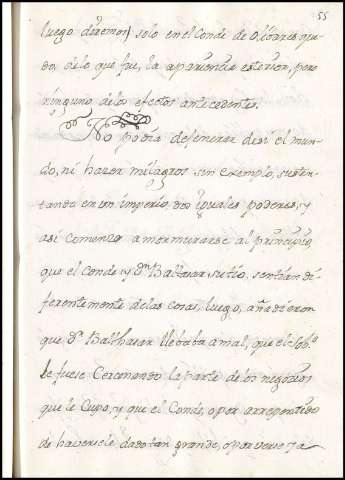 55
luego deremos) solo en el Conde de Olibares que
do de lo que fue, la apariencia esterior, pero
ninguno de los efectos antecedentes.
No podia dejenerar de si el mun
do, ni hazer milagros sin exemplo, susten
tando en un imperio dos iguales poderes, y
asi comenzo a mormurarse al principio
que el Conde y Dn. Baltasar, su tio, sentian di
ferentemente de las cosas, luego, añadieron
que Dn. Balthasar llebaba a mal, que el Sobo.
le fuese Cercenando la parte de los negocios
que le Cupo, y que el Conde, o por arrepentido
de haversele dado tan grande, o por verse ya